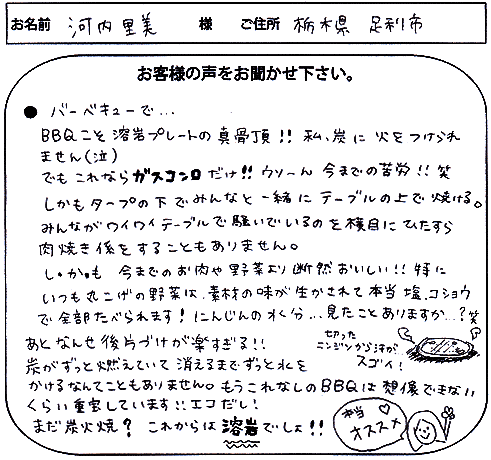 お名前 河内里美 様 ご住所 栃木県 足利市
お客様の声をお聞かせ下さい。
● バーベキューで…
BBQこそ溶岩プレートの真骨頂!! 私、炭に火をつけられ
ません(泣)
でもこれならガスコンロだけ!! ウソ〜ん 今までの苦労!! 笑
しかもタープの下でみんなと一緒にテーブルの上で焼ける。
みんながワイワイテーブルで騒いでいるのを横目にひたすら
肉焼き係をすることもありません。
し・か・も 今までのお肉や野菜より断然おいしい!! 特に
いつも丸こげの野菜は、素材の味が生かされて本当 塩、コショウ
で全部たべられます! にんじんの水分…見たことありますか…?笑
あとなんせ後片づけが楽すぎる!!
炭がずっと燃えていて 消えるまでずっと水を
かけるなんてこともありません。もうこれなしのBBQは想像できない
くらい重宝しています!! エコだし!
まだ炭火焼? これからは溶岩でしょ!!
切った
ニンジンから汗が…
スゴイ!
本当♡
オススメ